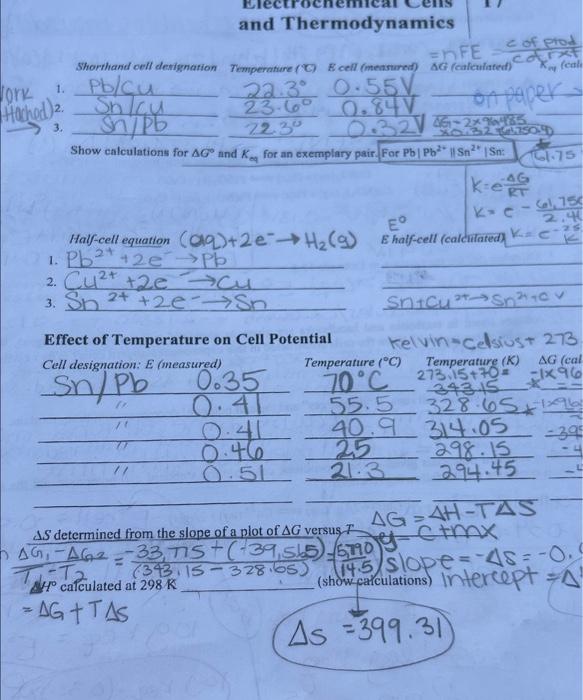 Electrochemical Cells 17
and Thermodynamics
= nFE
Shorthand cell designation Temperature (°C) E cell (measured) ΔG (calculated)
1. Pb/Cu 22.3° 0.55V
on paper
2. Sn/Cu 23.6° 0.84V
3. Sn/Pb 22.3° 0.32V ΔG = 2x96485
Show calculations for ΔG° and Keq for an exemplary pair. For Pb | Pb²⁺ || Sn²⁺ | Sn:
61.75
K = e -ΔG/RT
K = e - 61,750
E°
Half-cell equation (aq)+2e⁻ → H₂(g) E half-cell (calculated)
1. Pb²⁺ +2e⁻ → Pb
2. Cu²⁺ +2e⁻ → Cu
3. Sn²⁺ +2e⁻ → Sn Sn+Cu²⁺ → Sn²⁺+C
Effect of Temperature on Cell Potential Kelvin = Celsius + 273
Cell designation: E (measured) Temperature (°C) Temperature (K) ΔG (cal
273.15+70=
Sn/Pb 0.35 70°C 343.15 -1x96
" 0.41 55.5 328.65 -1x96
" 0.41 40.9 314.05 -39
" 0.46 25 298.15 -4
" 0.51 21.3 294.45
ΔG = ΔH - TΔS
ΔS determined from the slope of a plot of ΔG versus T y c+mx
ΔG₁ - ΔG₂ / T₁ - T₂ = -33,775 - (-39,565) / (343.15 - 328.65) = 5790 / (14.5) slope = -ΔS = -0.
ΔH° calculated at 298 K (show calculations) intercept = Δ
= ΔG + TΔS
Δs = 399.31